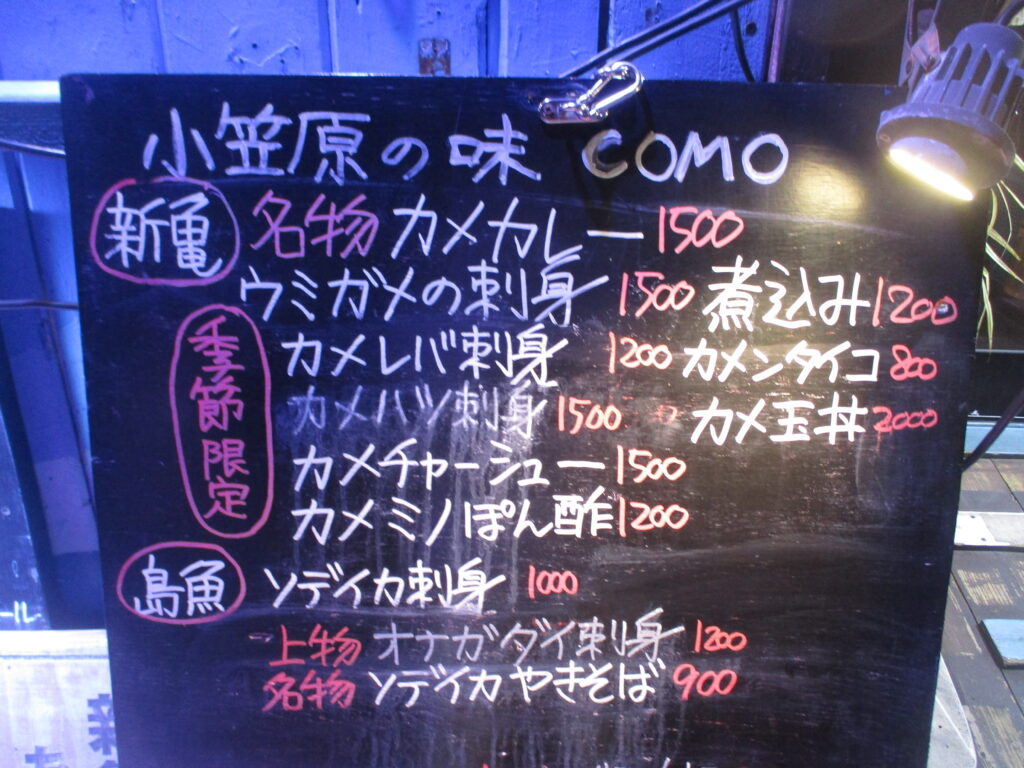 小笠原の味 COMO
新亀 名物 カメカレー 1500
ウミガメの刺身 1500 煮込み 1200
季節限定
カメレバ刺身 1200 カメンタイコ 800
カメハツ刺身 1500 カメ玉丼 2000
カメチャーシュー 1500
カメミノぽん酢 1200
島魚 ソデイカ刺身 1000
上物 オナガダイ刺身 1200
名物 ソデイカやきそば 900